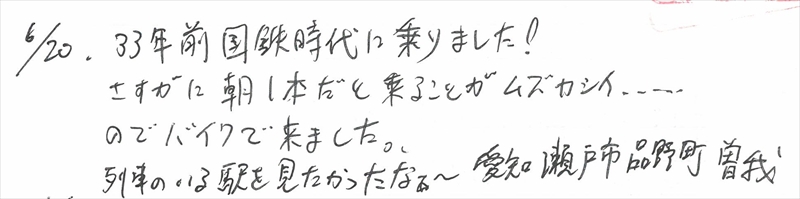 6/20. 33年前国鉄時代に乗りました!
さすがに朝1本だと乗ることがムズカシイ......
のでバイクで来ました。
列車のいる駅を見たかったなぁ〜 愛知 瀬戸市品野町 曽我